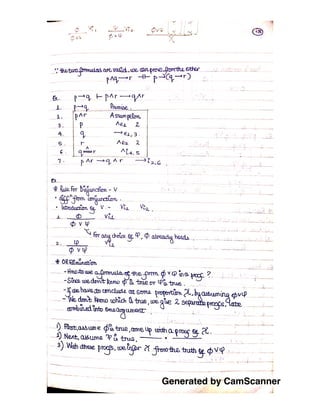 ∵ the two formulas are valid, we can prove from the other
p∧q → r ⊣⊢ p→(q→r)
Ex. p→q ⊢ p∧r → q∧r
1. p→q Premise
2. p∧r Assumption
3. p ∧e₁ 2
4. q →e 1,3
5. r ∧e₂ 2
6. q∧r ∧i 4,5
7. p∧r → q∧r →i 2,6
Ex.
⊛ Rule for Disjunction - ∨
• diff from conjunction.
• Introduction of ∨ - ∨i₁ ∨i₂
1. φ ∨i₁
φ∨ψ
for any choice of ψ, φ already holds
2. ψ ∨i₂
φ∨ψ
OR Elimination
- How to use a formula of the form φ∨ψ in a proof ?
- Since we don't know φ is true or ψ is true.
- If we have to conclude at some proposition χ, by assuming φ∨ψ
- We don't know which is true, we give 2 separate proofs, later
combined into one argument
1) First, assume φ is true, come up with a proof of χ.
2) Next, assume ψ is true,
3) With these proofs, we infer χ from the truth of φ∨ψ
Generated by CamScanner